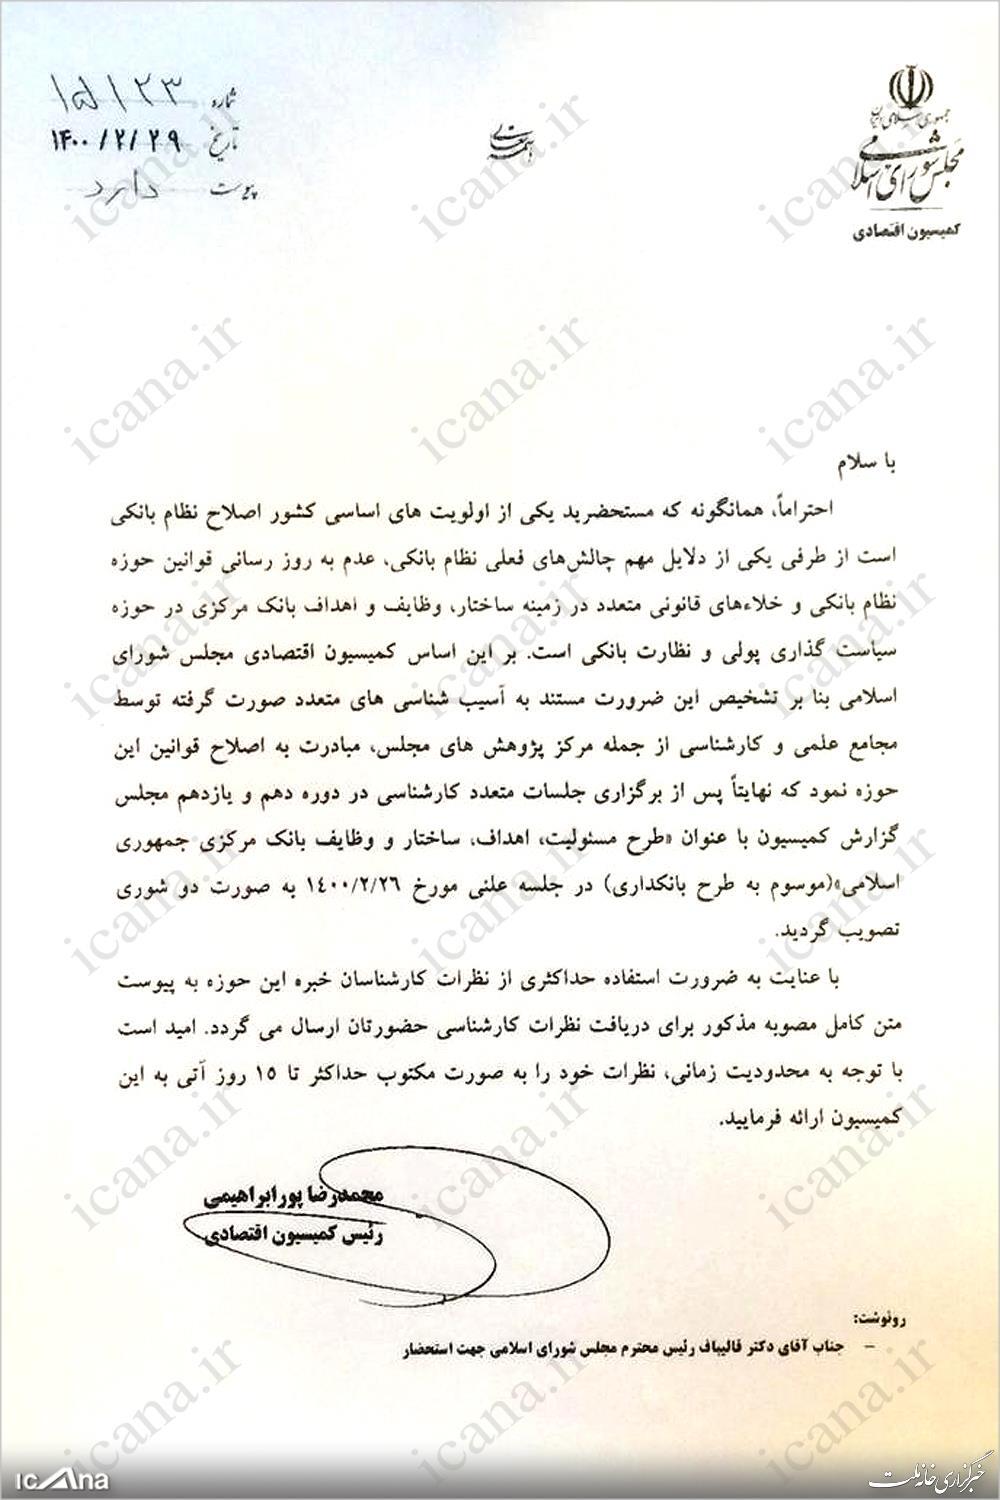 جمهوری اسلامی ایران
مجلس شورای اسلامی
کمیسیون اقتصادی
باسمه تعالی
شماره ۱۵۱۲۳
تاریخ ۱۴۰۰/۲/۲۹
پیوست دارد
با سلام
احتراماً، همانگونه که مستحضرید یکی از اولویت های اساسی کشور اصلاح نظام بانکی
است از طرفی یکی از دلایل مهم چالش‌های فعلی نظام بانکی، عدم به روز رسانی قوانین حوزه
نظام بانکی و خلاءهای قانونی متعدد در زمینه ساختار، وظایف و اهداف بانک مرکزی در حوزه
سیاست گذاری پولی و نظارت بانکی است. بر این اساس کمیسیون اقتصادی مجلس شورای
اسلامی بنا بر تشخیص این ضرورت مستند به آسیب شناسی های متعدد صورت گرفته توسط
مجامع علمی و کارشناسی از جمله مرکز پژوهش های مجلس، مبادرت به اصلاح قوانین این
حوزه نمود که نهایتاً پس از برگزاری جلسات متعدد کارشناسی در دوره دهم و یازدهم مجلس
گزارش کمیسیون با عنوان «طرح مسئولیت، اهداف، ساختار و وظایف بانک مرکزی جمهوری
اسلامی»(موسوم به طرح بانکداری) در جلسه علنی مورخ ۱۴۰۰/۲/۲۶ به صورت دو شوری
تصویب گردید.
با عنایت به ضرورت استفاده حداکثری از نظرات کارشناسان خبره این حوزه به پیوست
متن کامل مصوبه مذکور برای دریافت نظرات کارشناسی حضورتان ارسال می گردد. امید است
با توجه به محدودیت زمانی، نظرات خود را به صورت مکتوب حداکثر تا ۱۵ روز آتی به این
کمیسیون ارائه فرمایید.
محمدرضا پورابراهیمی
رئیس کمیسیون اقتصادی
رونوشت:
- جناب آقای دکتر قالیباف رئیس محترم مجلس شورای اسلامی جهت استحضار
icana.ir
icana
خبرگزاری خانه ملت